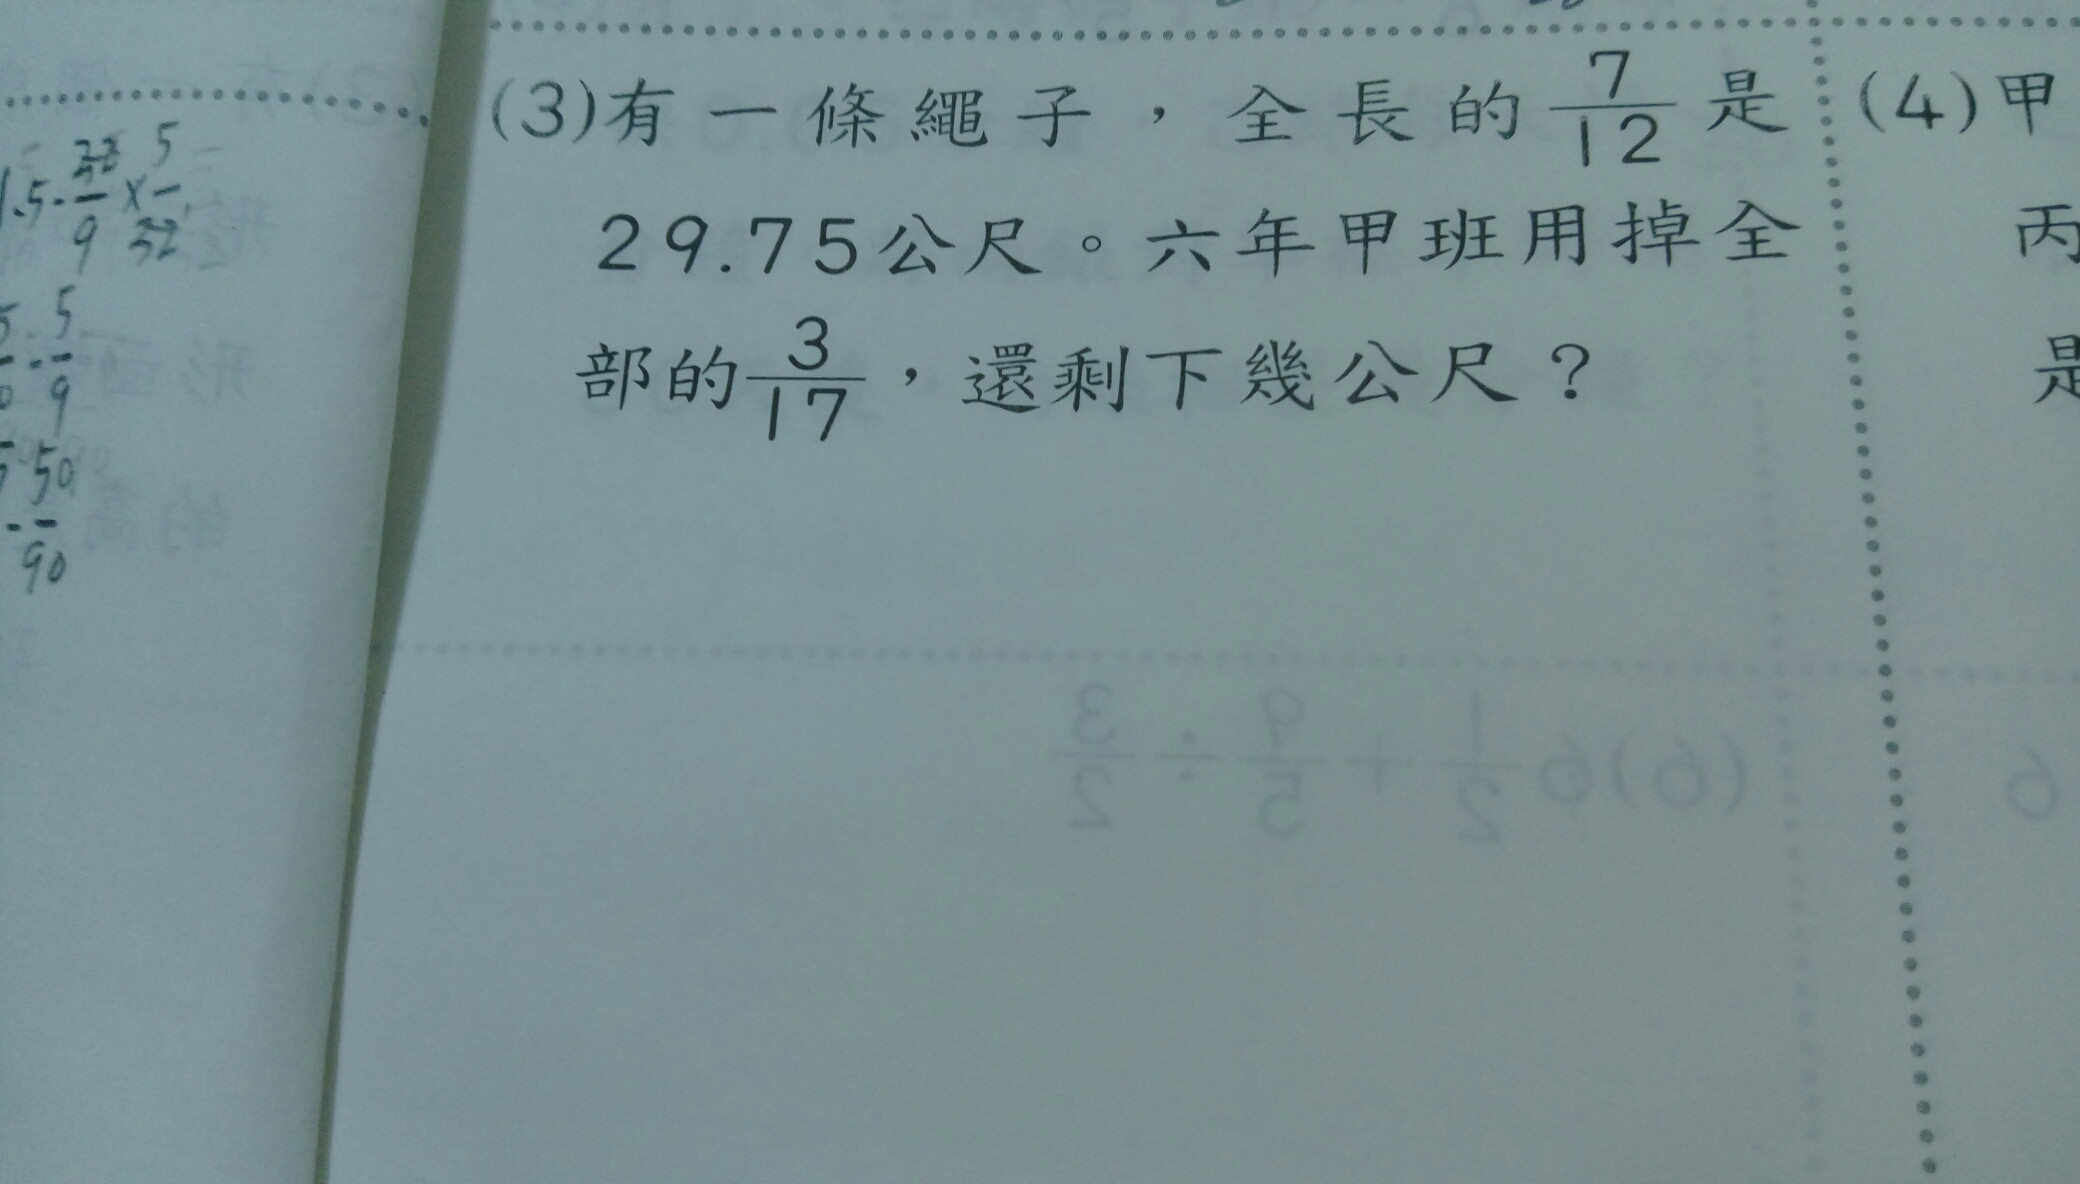 (3)有一條繩子，全長的 7/12 是
29.75公尺。六年甲班用掉全
部的 3/17，還剩下幾公尺？
(4)甲
丙
是
1.5-22/9×5/22
-5/9
-50/90
(6)6 1/2+9/5÷3/2